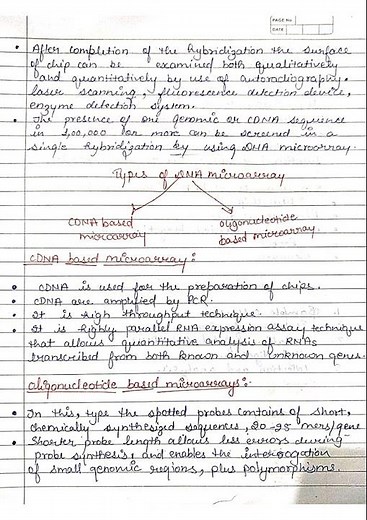 PAGE No.
DATE
• After completion of the hybridization the surface
of chip can be examined both qualitatively
and quantitatively by use of autoradiography,
laser scanning, fluorescence detection device,
enzyme detection system.
• The presence of one genomic or CDNA sequence
in 1,00,000 or more can be screened in a
single hybridization by using DNA microarray.
Types of DNA microarray
CDNA based
microarray
oligonucleotide
based microarray
CDNA based microarray:
• CDNA is used for the preparation of chips.
• CDNA are amplified by PCR.
• It is high throughput technique.
• It is highly parallel RNA expression assay technique
that allows quantitative analysis of RNAs
transcribed from both known and unknown genes.
oligonucleotide based microarrays:
• In this, type the spotted probes contains of short,
chemically synthesized sequences, 20-25 mers/gene
• Shorter probe length allows less errors during
probe synthesis, and enables the interrogation
of small genomic regions, plus polymorphisms.